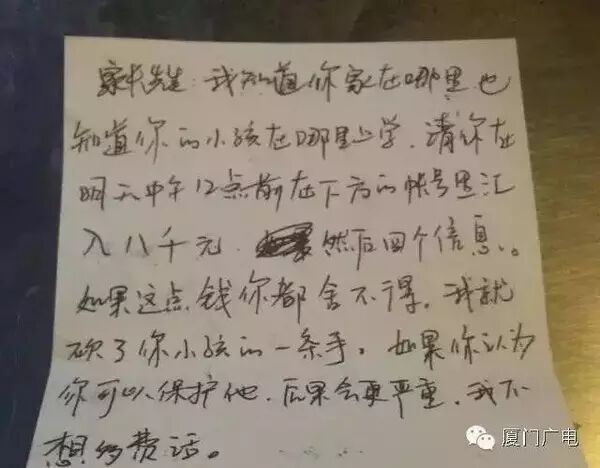 家长先生 我知道你家在哪里也
知道你的小孩在哪里上学,请你在
明天中午12点前在下方的帐号里汇
入八千元. 然后回个信息。
如果这点钱你都舍不得,我就
砍了你小孩的一条手。如果你认为
你可以保护他,后果会更严重,我不
想多费话。
厦门广电